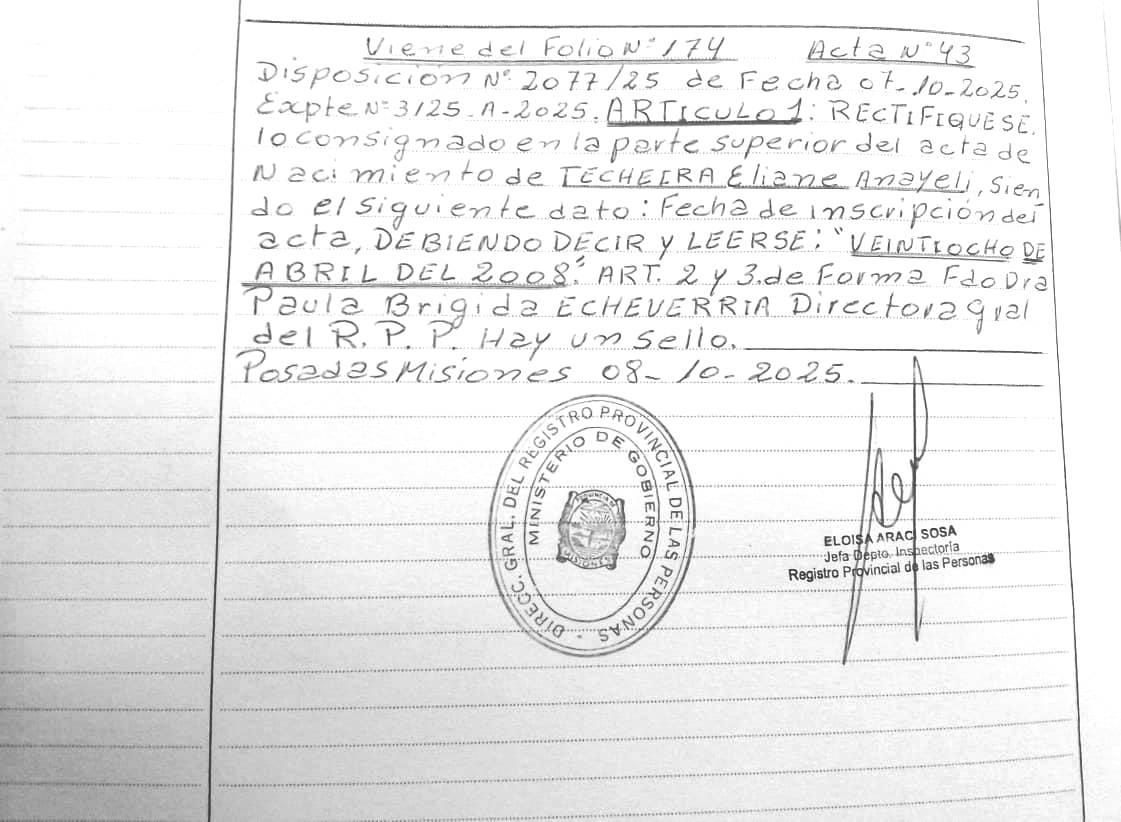 Viene del Folio N° 174 Acta N° 43
Disposición N° 2077/25 de Fecha 07-10-2025.
Expte N° 3125-A-2025. ARTICULO 1: RECTIFIQUESE.
lo consignado en la parte superior del acta de
Nacimiento de TECHEIRA Eliane Anayeli, sien
do el siguiente dato: Fecha de inscripción del
acta, DEBIENDO DECIR y LEERSE: "VEINTIOCHO DE
ABRIL DEL 2008". ART. 2 y 3. de Forma Fdo Dra
Paula Brigida ECHEVERRIA Directora gral
del R. P. P. Hay un sello.
Posadas Misiones 08-10-2025.
DIRECC. GRAL. DEL REGISTRO PROVINCIAL DE LAS PERSONAS
MINISTERIO DE GOBIERNO
MISIONES
ELOISA ARACI SOSA
Jefa Depto. Inspectoría
Registro Provincial de las Personas